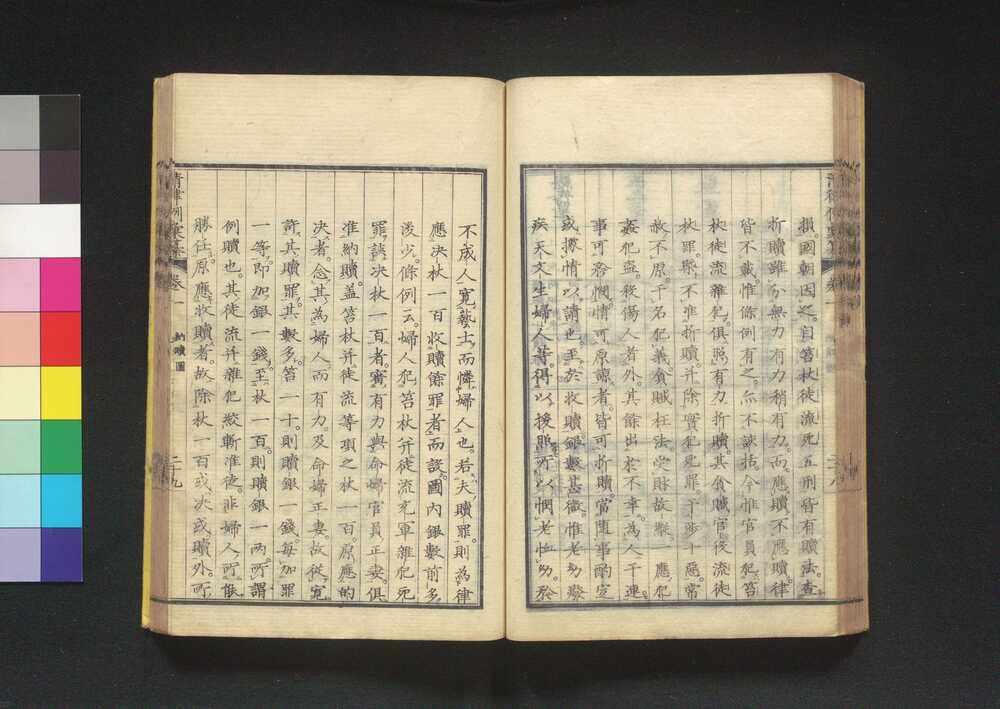 損。國朝因之。自笞杖徒流死五刑皆有贖法。查
折贖雖分無力有力稍有力。而應贖不應贖。律
皆不載。惟條例有之。亦不詼括。今惟官員犯笞
杖徒流雜犯。俱照有力折贖。其貪贓官役流徒
杖罪。槩不准折贖。并除實犯死罪。干涉十惡。常
赦不原。干名犯義。貪贓枉法。受財故縱。一應犯
姦犯盜。殺傷人者外。其餘出於不幸。為人干連。
事可矜憫。情可原諒者。皆可折贖。當隨事酌定
或擬情以請也。至於收贖銀數甚微。惟老幼廢
疾天文生婦人等。得以援照。所以憫老恤幼。矜
不成人。寬藝士。而憐婦人也。若夫贖罪。則為律
應決杖一百收贖餘罪者而設。圖內銀數前多
後少。條例云。婦人犯笞杖并徒流充軍雜犯死
罪。該決杖一百者。審有力與命婦官員正妻。俱
准納贖。蓋笞杖并徒流等項之杖一百。原應的
決者。念其為婦人而有力。及命婦正妻。故從寬
許其贖罪。其數多。笞一十。則贖銀一錢。每加罪
一等。即加銀一錢。至杖一百。則贖銀一兩。所謂
例贖也。其徒流并雜犯絞斬准徒。非婦人所能
勝任。原應收贖者。故除杖一百或決或贖外。所
清律例彙纂
卷一
納贖圖
二十九